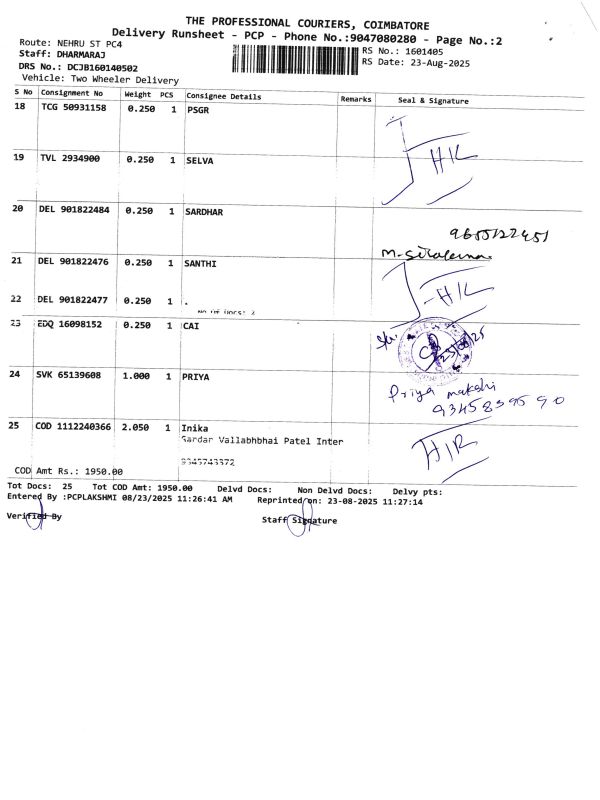 THE PROFESSIONAL COURIERS, COIMBATORE
Delivery Runsheet - PCP - Phone No.:9047080280 - Page No.:2
Route: NEHRU ST PC4
RS No.: 1601405
Staff: DHARMARAJ
RS Date: 23-Aug-2025
DRS No.: DCJB160140502
Vehicle: Two Wheeler Delivery
S No Consignment No Weight PCS Consignee Details Remarks Seal & Signature
18 TCG 50931158 0.250 1 PSGR
19 TVL 2934900 0.250 1 SELVA
20 DEL 901822484 0.250 1 SARDHAR
9655122451
21 DEL 901822476 0.250 1 SANTHI
22 DEL 901822477 0.250 1 .
No Of Docs: 2
23 EDQ 16098152 0.250 1 CAI
24 SVK 65139608 1.000 1 PRIYA
Priya
9345839590
25 COD 1112240366 2.050 1 Inika
Sardar Vallabhbhai Patel Inter
9345743372
COD Amt Rs.: 1950.00
Tot Docs: 25 Tot COD Amt: 1950.00 Delvd Docs: Non Delvd Docs: Delvy pts:
Entered By :PCPLAKSHMI 08/23/2025 11:26:41 AM Reprinted on: 23-08-2025 11:27:14
Verified By
Staff Signature